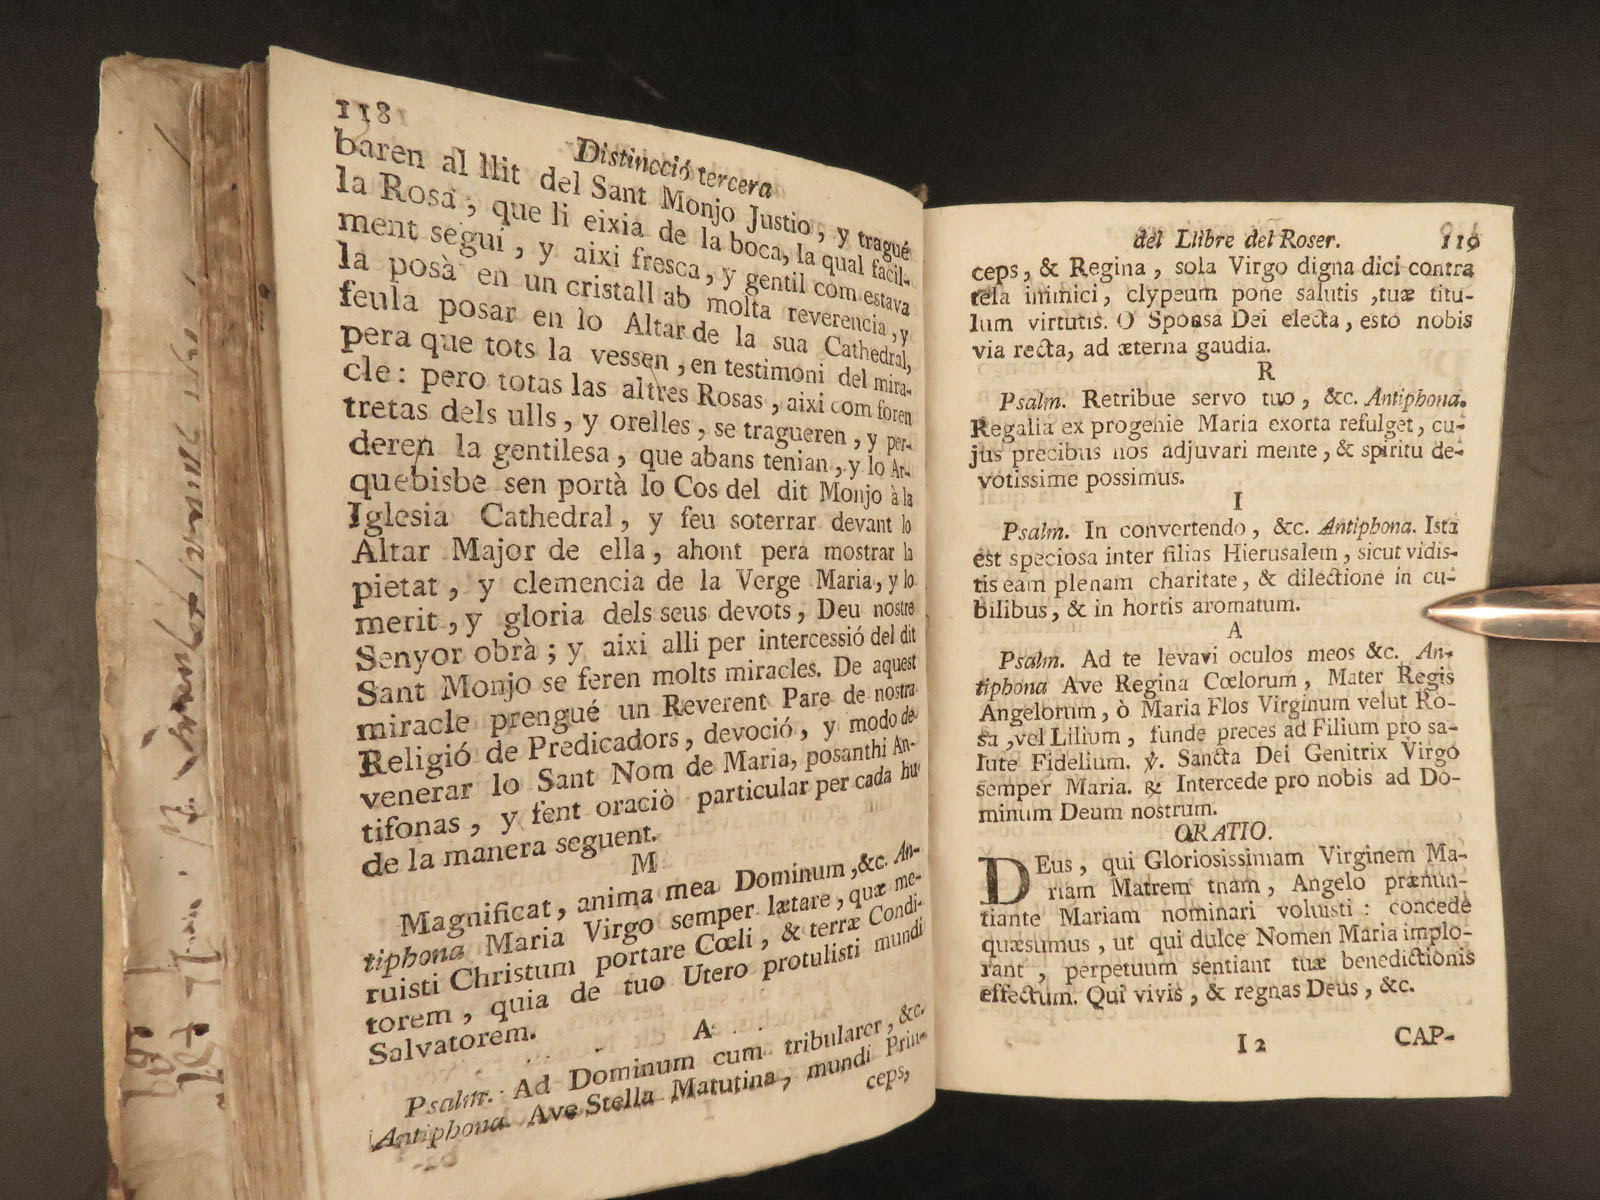 118
Distincció tercera
baren al llit del Sant Monjo Justio, y tragué
la Rosa, que li eixia de la boca, la qual facil-
ment segui, y aixi fresca, y gentil com estava
la posà en un cristall ab molta reverencia, y
feula posar en lo Altar de la sua Cathedral,
pera que tots la vessen, en testimoni del mira-
cle: pero totas las altres Rosas, aixi com foren
tretas dels ulls, y orelles, se tragueren, y per-
deren la gentilesa, que abans tenian, y lo Ar-
quebisbe sen portà lo Cos del dit Monjo à la
Iglesia Cathedral, y feu soterrar devant lo
Altar Major de ella, ahont pera mostrar la
pietat, y clemencia de la Verge Maria, y lo
merit, y gloria dels seus devots, Deu nostre
Senyor obrà; y aixi alli per intercessió del dit
Sant Monjo se feren molts miracles. De aquest
miracle prengué un Reverent Pare de nostra
Religió de Predicadors, devoció, y modo de
venerar lo Sant Nom de Maria, posanthi An-
tifonas, y fent oraciò particular per cada hu
de la manera seguent.
M
Magnificat, anima mea Dominum, &c. An-
tiphona Maria Virgo semper lætare, quæ me-
ruisti Christum portare Cœli, & terræ Condi-
torem, quia de tuo Utero protulisti mundi
Salvatorem.
A
Psalm. Ad Dominum cum tribularer, &c.
Antiphona. Ave Stella Matutina, mundi Prin-
ceps,
del Llibre del Roser. 119
ceps, & Regina, sola Virgo digna dici contra
tela inimici, clypeum pone salutis, tuæ titu-
lum virtutis. O Sponsa Dei electa, esto nobis
via recta, ad æterna gaudia.
R
Psalm. Retribue servo tuo, &c. Antiphona.
Regalia ex progenie Maria exorta refulget, cu-
jus precibus nos adjuvari mente, & spiritu de-
votissime possimus.
I
Psalm. In convertendo, &c. Antiphona. Ista
est speciosa inter filias Hierusalem, sicut vidis-
tis eam plenam charitate, & dilectione in cu-
bilibus, & in hortis aromatum.
A
Psalm. Ad te levavi oculos meos &c. An-
tiphona Ave Regina Cœlorum, Mater Regis
Angelorum, ò Maria Flos Virginum velut Ro-
sa, vel Lilium, funde preces ad Filium pro sa-
lute Fidelium. ℣. Sancta Dei Genitrix Virgo
semper Maria. ℟ Intercede pro nobis ad Do-
minum Deum nostrum.
ORATIO.
DEus, qui Gloriosissimam Virginem Ma-
riam Matrem tnam, Angelo prænun-
tiante Mariam nominari voluisti: concede
quæsumus, ut qui dulce Nomen Maria implo-
rant, perpetuum sentiant tuæ benedictionis
effectum. Qui vivis, & regnas Deus, &c.
I 2
CAP-